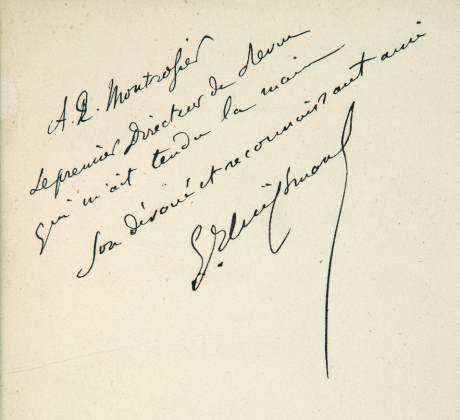 A. R. Montrosier
Le premier Directeur de Revue
qui m'ait tendu la main
Son dévoué et reconnaissant ami
G. Huÿsmans